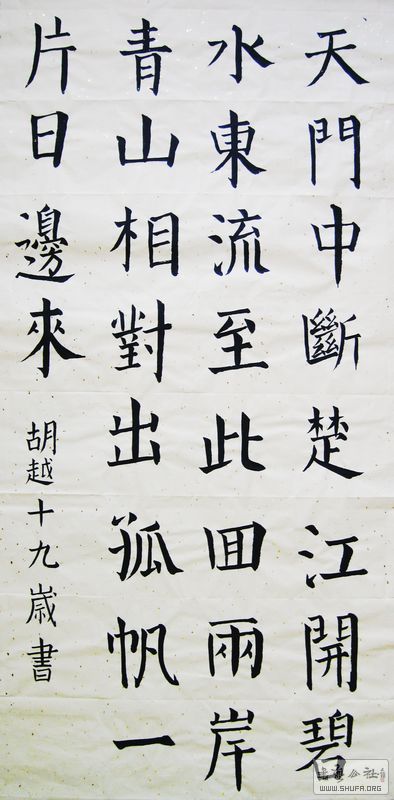 天門中斷楚江開碧
水東流至此回兩岸
青山相對出孤帆一
片日邊來
胡越十九歲書
WWW.SHUFA.ORG